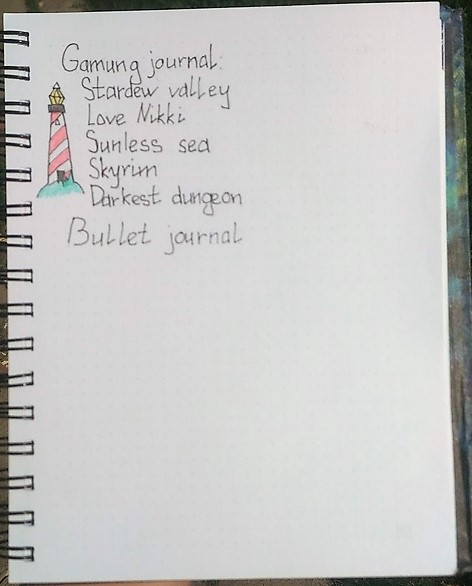 Gamung journal:
Stardew valley
Love Nikki
Sunless sea
Skyrim
Darkest dungeon
Bullet journal